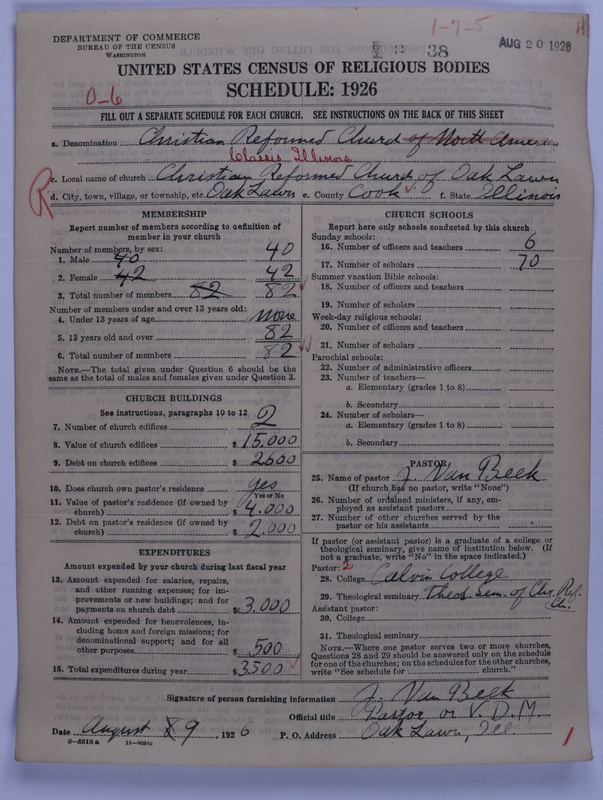 1-7-5
DEPARTMENT OF COMMERCE
BUREAU OF THE CENSUS
WASHINGTON
38
AUG 20 1926
UNITED STATES CENSUS OF RELIGIOUS BODIES
SCHEDULE: 1926
0-6
FILL OUT A SEPARATE SCHEDULE FOR EACH CHURCH. SEE INSTRUCTIONS ON THE BACK OF THIS SHEET
a. Denomination Christian Reformed Church of North America
Classis Illinois
c. Local name of church Christian Reformed Church of Oak Lawn
R
d. City, town, village, or township, etc. Oak Lawn e. County Cook f. State Illinois
MEMBERSHIP
Report number of members according to definition of member in your church
Number of members, by sex:
1. Male 40 40
2. Female 42 42
3. Total number of members 82 82
Number of members under and over 13 years old:
4. Under 13 years of age none
5. 13 years old and over 82
6. Total number of members 82
NOTE.—The total given under Question 6 should be the same as the total of males and females given under Question 3.
CHURCH BUILDINGS
See instructions, paragraphs 10 to 12
7. Number of church edifices 2
8. Value of church edifices $ 15,000
9. Debt on church edifices $ 2600
10. Does church own pastor's residence yes
Yes or No
11. Value of pastor's residence (if owned by church) $ 4,000
12. Debt on pastor's residence (if owned by church) $ 2,000
EXPENDITURES
Amount expended by your church during last fiscal year
13. Amount expended for salaries, repairs, and other running expenses; for improvements or new buildings; and for payments on church debt $ 3,000
14. Amount expended for benevolences, including home and foreign missions; for denominational support; and for all other purposes $ 500
15. Total expenditures during year $ 3500
CHURCH SCHOOLS
Report here only schools conducted by this church
Sunday schools:
16. Number of officers and teachers 6
17. Number of scholars 70
Summer vacation Bible schools:
18. Number of officers and teachers
19. Number of scholars
Week-day religious schools:
20. Number of officers and teachers
21. Number of scholars
Parochial schools:
22. Number of administrative officers
23. Number of teachers—
a. Elementary (grades 1 to 8)
b. Secondary
24. Number of scholars—
a. Elementary (grades 1 to 8)
b. Secondary
PASTOR
25. Name of pastor J. Van Beek
(If church has no pastor, write "None")
26. Number of ordained ministers, if any, employed as assistant pastors
27. Number of other churches served by the pastor or his assistants
If pastor (or assistant pastor) is a graduate of a college or theological seminary, give name of institution below. (If not a graduate, write "No" in the space indicated.)
Pastor: 2
28. College Calvin College
29. Theological seminary Theol. Sem. of Chr. Ref. Ch.
Assistant pastor:
30. College
31. Theological seminary
NOTE.—Where one pastor serves two or more churches, Questions 28 and 29 should be answered only on the schedule for one of the churches; on the schedules for the other churches, write "See schedule for ........ church."
Signature of person furnishing information J. Van Beek
Official title Pastor or V.D.M.
Date August 9, 1926 P. O. Address Oak Lawn, Ill
1